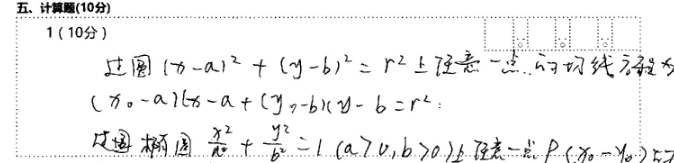 五、计算题(10分)
1（10分）
过圆 (x-a)² + (y-b)² = r² 上任意一点 的切线方程为
(x₀-a)(x-a + (y₀-b)(y-b = r²:
过圆 椭圆 x²/a² + y²/b² = 1 (a>0, b>0) 上任意一点 P (x₀-y₀)